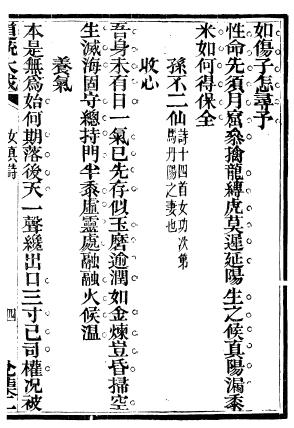 如傷子怎尋子
性命先須月窟參擒龍縛虎莫遲延陽生之候真陽漏黍
米如何得保全
孫不二仙詩十四首女功次第馬丹陽之妻也
收心
吾身未有日一氣已先存似玉磨逾潤如金煉豈昏掃空
生滅海固守總持門半黍虛靈處融融火候溫
養氣
本是無為始何期落後天一聲纔出口三寸已司權況被
大成
女頭詩
四